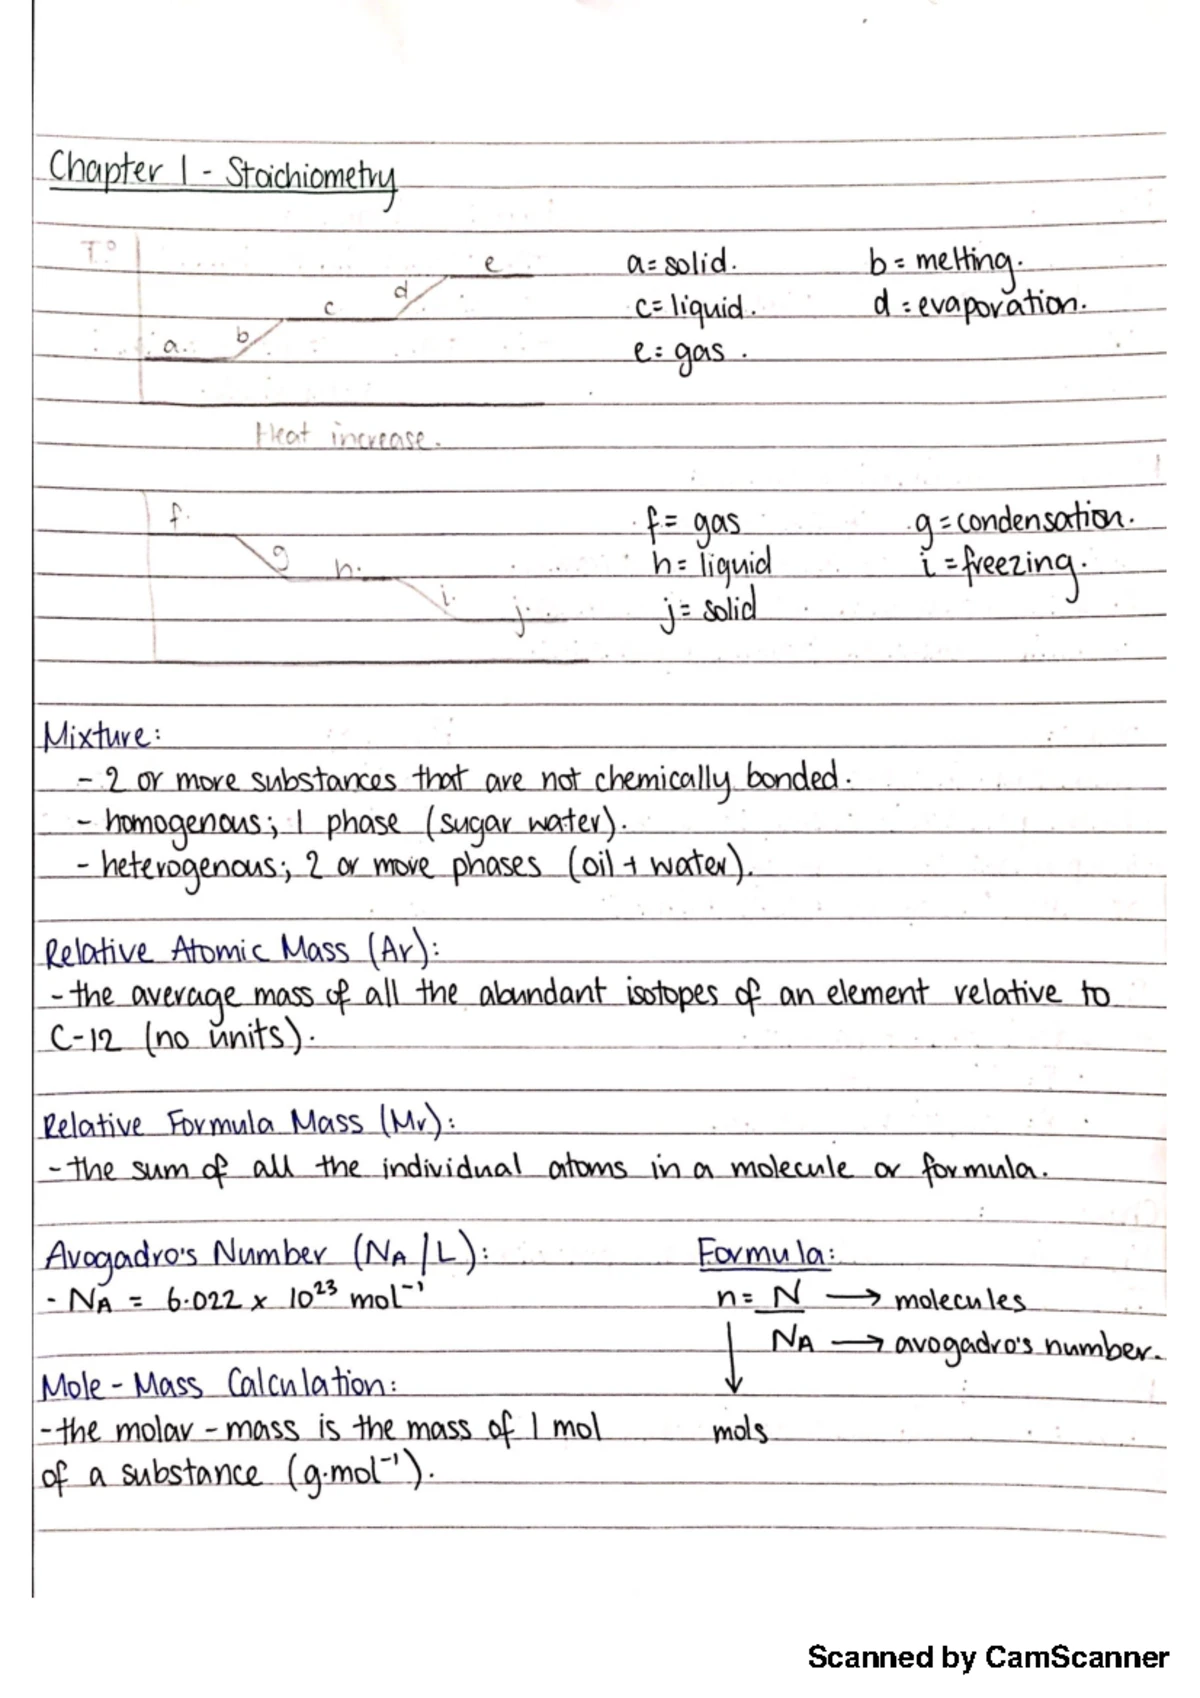 Chapter 1 - Stoichiometry
T°
e
a = solid.
b = melting.
d
c
c = liquid.
d = evaporation.
a.
b
e = gas.
Heat increase.
f.
f = gas
g = condensation.
g
h.
h = liquid
i = freezing.
i.
j.
j = solid
Mixture:
- 2 or more substances that are not chemically bonded.
- homogenous; 1 phase (sugar water).
- heterogenous; 2 or more phases (oil + water).
Relative Atomic Mass (Ar):
- the average mass of all the abundant isotopes of an element relative to
C-12 (no units).
Relative Formula Mass (Mr):
- the sum of all the individual atoms in a molecule or formula.
Avogadro's Number (NA / L):
Formula:
- NA = 6.022 x 10²³ mol⁻¹
n = N → molecules
NA → avogadro's number.
Mole - Mass Calculation:
- the molar - mass is the mass of 1 mol
mols
of a substance (g.mol⁻¹).
Scanned by CamScanner